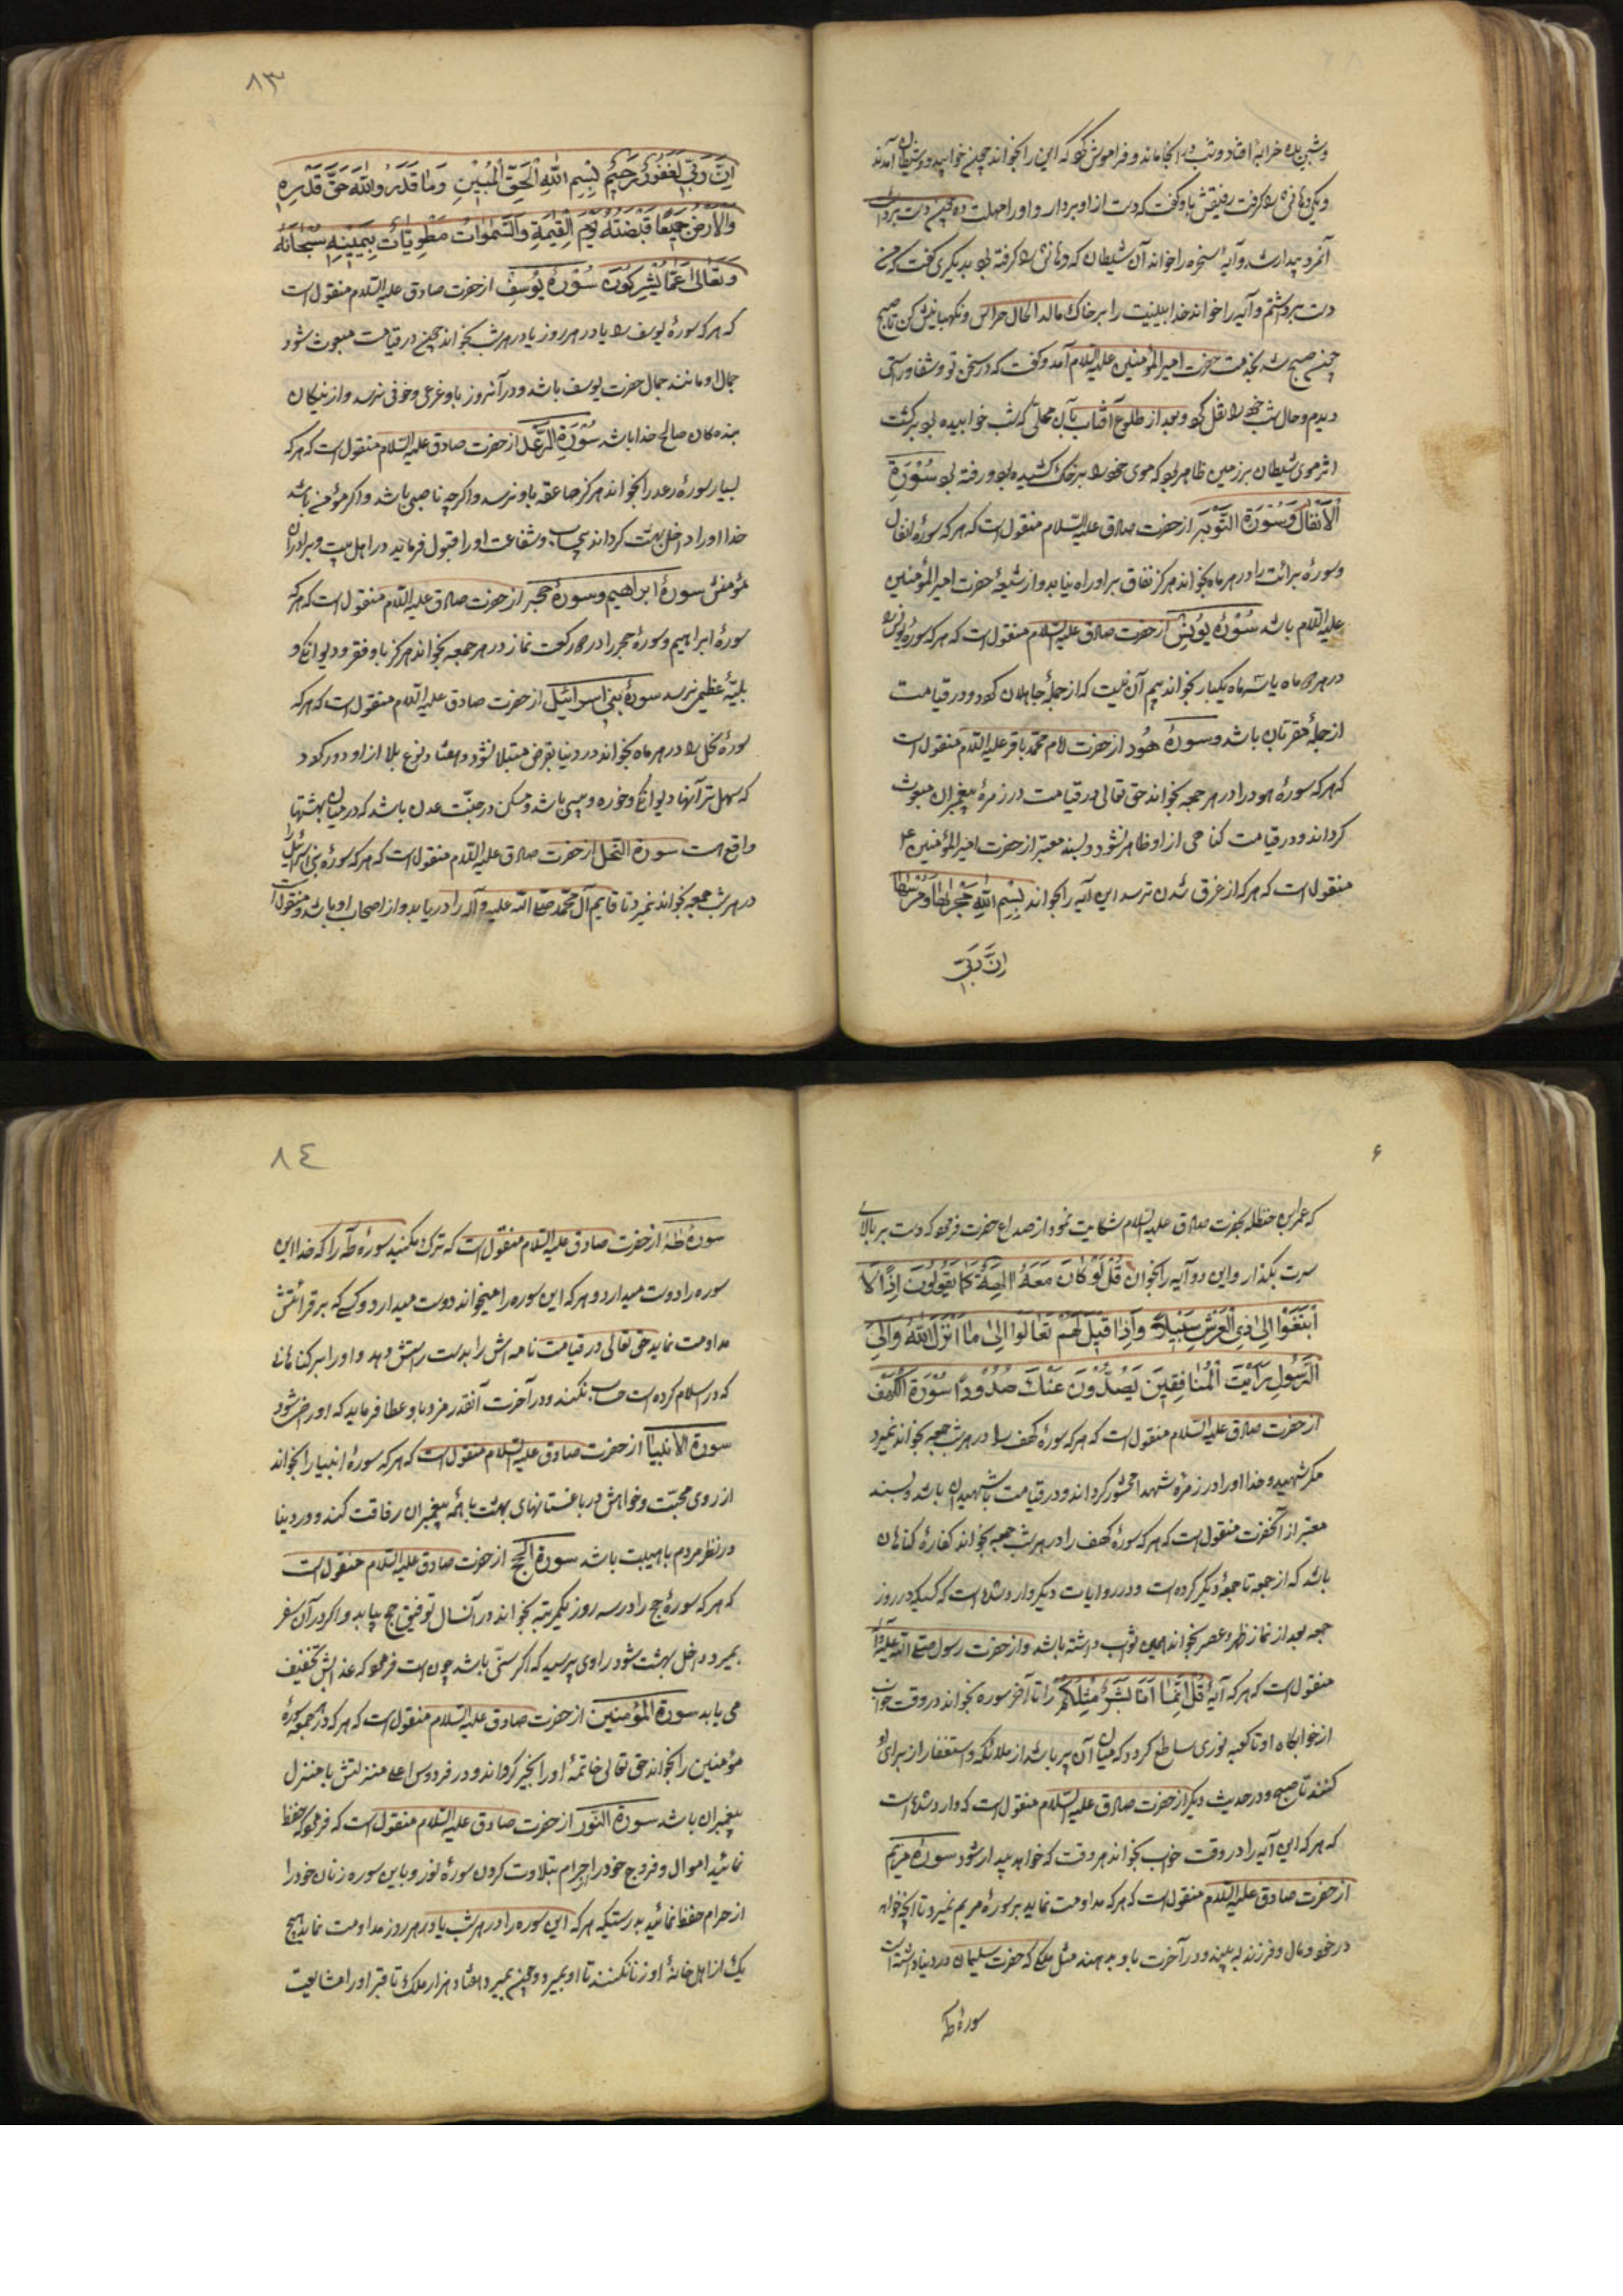 و شب بده خرابهٔ افتاد و شب در آنجا ماند و فراموش کرد که این را بخواند چون خوابید دو شیطان آمدند
و یکی دهانش را گرفت رفیقش باو گفت که دست از او بردار و او را مهلت ده چون دست برداشت
آنمرد بیدار شد و آیهٔ سخره را خواند آن شیطان که دهانش را گرفته بود بدیگری گفت که من
دست برداشتم و آیه را خواند خدا بینیت را بر خاک مالد الحال حراس و نگهبانیش کن تا صبح
چون صبح شد بخدمت حضرت امیرالمؤمنین علیه السلام آمد و گفت که در سخن تو شفا و راستی
دیدم و حال شب خود را نقل کرد و بعد از طلوع آفتاب بآن محلی که شب خوابیده بود برگشت
اثر موی شیطان بر زمین ظاهر بود که موی خود را بر خاک کشیده بود و رفته بود سُوْرَةِ
الْاَنْفٰالَ وَسُوْرَة التَّوْبَه از حضرت صادق علیه السلام منقول است که هر که سورهٔ انفال
و سورهٔ برائت را در هر ماه بخواند هرگز نفاق بر او راه نیابد و از شیعهٔ حضرت امیرالمؤمنین
علیه السلام باشد سُوْرَهٔ یُونُسْ از حضرت صادق علیه السلام منقول است که هر که سورهٔ یونس را
در هر دو ماه یا سه ماه یکبار بخواند بیم آن نیست که از جملهٔ جاهلان گردد و در قیامت
از جملهٔ مقربان باشد و سورهٔ هُود از حضرت امام محمد باقر علیه السلام منقول است
که هر که سورهٔ هود را در هر جمعه بخواند حق تعالی در قیامت در زمرهٔ پیغمبران مبعوث
گرداند و در قیامت گناهی از او ظاهر نشود و بسند معتبر از حضرت امیرالمؤمنین ع
منقول است که هر که از غرق شدن ترسد این آیه را بخواند بِسْمِ اللّٰهِ مَجْریٰهٰا وَمُرْسٰیهٰا
اِنَّ رَبّیِ
٨٣
اِنَّ رَبّیِ لَغَفُورٌ رَحیٖمٌ بِسْمِ اللّٰهِ الْحَقّ الْمُبیٖنِ وَمٰا قَدَرُوا اللّٰهَ حَقَّ قَدْرِهِ
وَالْاَرْضُ جَمیٖعًا قَبْضَتُهُ یَوْمَ الْقِیٰمَةِ وَالسَّمٰوٰاتُ مَطْوِیّٰاتٌ بِیَمیٖنِهِ سُبْحٰانَهُ
وَتَعٰالیٰ عَمّٰا یُشْرِکُونَ سُوْرَهٔ یُوسُفْ از حضرت صادق علیه السلام منقول است
که هر که سورهٔ یوسف را یا در هر روز یا در هر شب بخواند چون در قیامت مبعوث شود
جمال او مانند جمال حضرت یوسف باشد و در آنروز باو فزعی و خوفی نرسد و از نیکان
بنده‌گان صالح خدا باشد سُوْرَةِ الرَّعْد از حضرت صادق علیه السلام منقول است که هر که
بسیار سورهٔ رعد را بخواند هرگز صاعقه باو نرسد و اگرچه ناصبی باشد و اگر مؤمن باشد
خدا او را داخل بهشت گرداند بیحساب و شفاعت او را قبول فرماید در اهل بیت و برادران
مؤمنش سورهٔ ابراهیم و سورهٔ حجر از حضرت صادق علیه السلام منقول است که هر که
سورهٔ ابراهیم و سورهٔ حجر را در دو رکعت نماز در هر جمعه بخواند هرگز باو فقر و دیوانگی و
بلیّهٔ عظیم نرسد سورهٔ بنی اسرائیل از حضرت صادق علیه السلام منقول است که هر که
سورهٔ نحل را در هر ماه بخواند در دنیا بقرض مبتلا نشود و هفتاد نوع بلا از او دور گردد
که سهل تر آنها دیوانگی و خوره و پیسی باشد و مسکن در جنّت عدن باشد که در میان بهشتها
واقع است سورة النحل از حضرت صادق علیه السلام منقول است که هر که سورهٔ بنی اسرائیل
در هر شب جمعه بخواند نمیرد تا قایم آل محمّد صلی الله علیه و آله را دریابد و از اصحاب او باشد و منقول است
۶
که عمر بن حنظله بحضرت صادق علیه السلام شکایت نمود از صداع حضرت فرمود که دست بر بالای
سرت بگذار و این دو آیه را بخوان قُلْ لَوْ کٰانَ مَعَهُ اٰلِهَةٌ کَمٰا یَقُولُونَ اِذًا لَا
ابْتَغَوْا اِلیٰ ذِی الْعَرْشِ سَبیٖلًا وَاِذٰا قیٖلَ لَهُمْ تَعٰالَوْا اِلیٰ مٰا اَنْزَلَ اللّٰهُ وَاِلیَ
الرَّسُولِ رَاَیْتَ الْمُنٰافِقیٖنَ یَصُدُّونَ عَنْكَ صُدُودًا سُوْرَة الکهف
از حضرت صادق علیه السلام منقول است که هر که سورهٔ کهف را در هر شب جمعه بخواند نمیرد
مگر شهید و خدا او را در زمرهٔ شهدا محشور گرداند و در قیامت با شهیدان باشد و بسند
معتبر از آنحضرت منقول است که هر که سورهٔ کهف را در هر شب جمعه بخواند کفارهٔ گناهان
باشد که از جمعه تا جمعهٔ دیگر کرده است و در روایات دیگر وارد شده است که کسیکه در روز
جمعه بعد از نماز ظهر و عصر بخواند همین ثواب داشته باشد و از حضرت رسول صلی الله علیه و آله
منقول است که هر که آیهٔ قُلْ اِنَّمٰا اَنَا بَشَرٌ مِثْلُکُمْ را تا آخر سوره بخواند در وقت خواب
از خوابگاه او تا کعبه نوری ساطع گردد که میان آن پر باشد از ملائکه و استغفار از برای او
کنند تا صبح و در حدیث دیگر از حضرت صادق علیه السلام منقول است که وارد شده است
که هر که این آیه را در وقت خواب بخواند هر وقت که خواهد بیدار شود سورهٔ مریم
از حضرت صادق علیه السلام منقول است که هر که مداومت نماید بر سورهٔ مریم نمیرد تا آنچه خواهد
در خود و مال و فرزند به بیند و در آخرت باو بدهند مثل ملکی که حضرت سلیمان در دنیا داشته است
سورهٔ طه
٨٤
سورهٔ طه از حضرت صادق علیه السلام منقول است که ترک مکنید سورهٔ طه را که خدا این
سوره را دوست میدارد و هر که این سوره را میخواند دوست میدارد و کسی که بر قرائتش
مداومت نماید حق تعالی در قیامت نامه‌اش را بدست راستش دهد و او را بر گناهان
که در اسلام کرده است حساب نکنند و در آخرت آنقدر مزد باو عطا فرماید که او راضی شود
سورة الانبیا از حضرت صادق علیه السلام منقول است که هر که سورهٔ انبیا را بخواند
از روی محبّت و خواهش در باغستانهای بهشت با همه پیغمبران رفاقت کند و در دنیا
در نظر مردم با هیبت باشد سورة الحج از حضرت صادق علیه السلام منقول است
که هر که سورهٔ حج را در سه روز یکمرتبه بخواند در آنسال توفیق حج بیابد و اگر در آن سفر
بمیرد داخل بهشت شود راوی پرسید که اگر سنّی باشد چون است فرمود که عذابش تخفیف
می یابد سورة المؤمنین از حضرت صادق علیه السلام منقول است که هر که در هر جمعه سورهٔ
مؤمنین را بخواند حق تعالی خاتمهٔ او را بخیر گرداند و در فردوس اعلی منزلتش با منزل
پیغمبران باشد سورة النور از حضرت صادق علیه السلام منقول است که فرمود که حفظ
نمائید اموال و فروج خود را از حرام بتلاوت کردن سورهٔ نور و باین سوره زنان خود را
از حرام حفظ نمائید بدرستیکه هر که این سوره را در هر شب یا در هر روز مداومت نماید هیچ
یک از اهل خانهٔ او زنا نکنند تا او بمیرد و چون بمیرد هفتاد هزار ملک تا قبر او را مشایعت